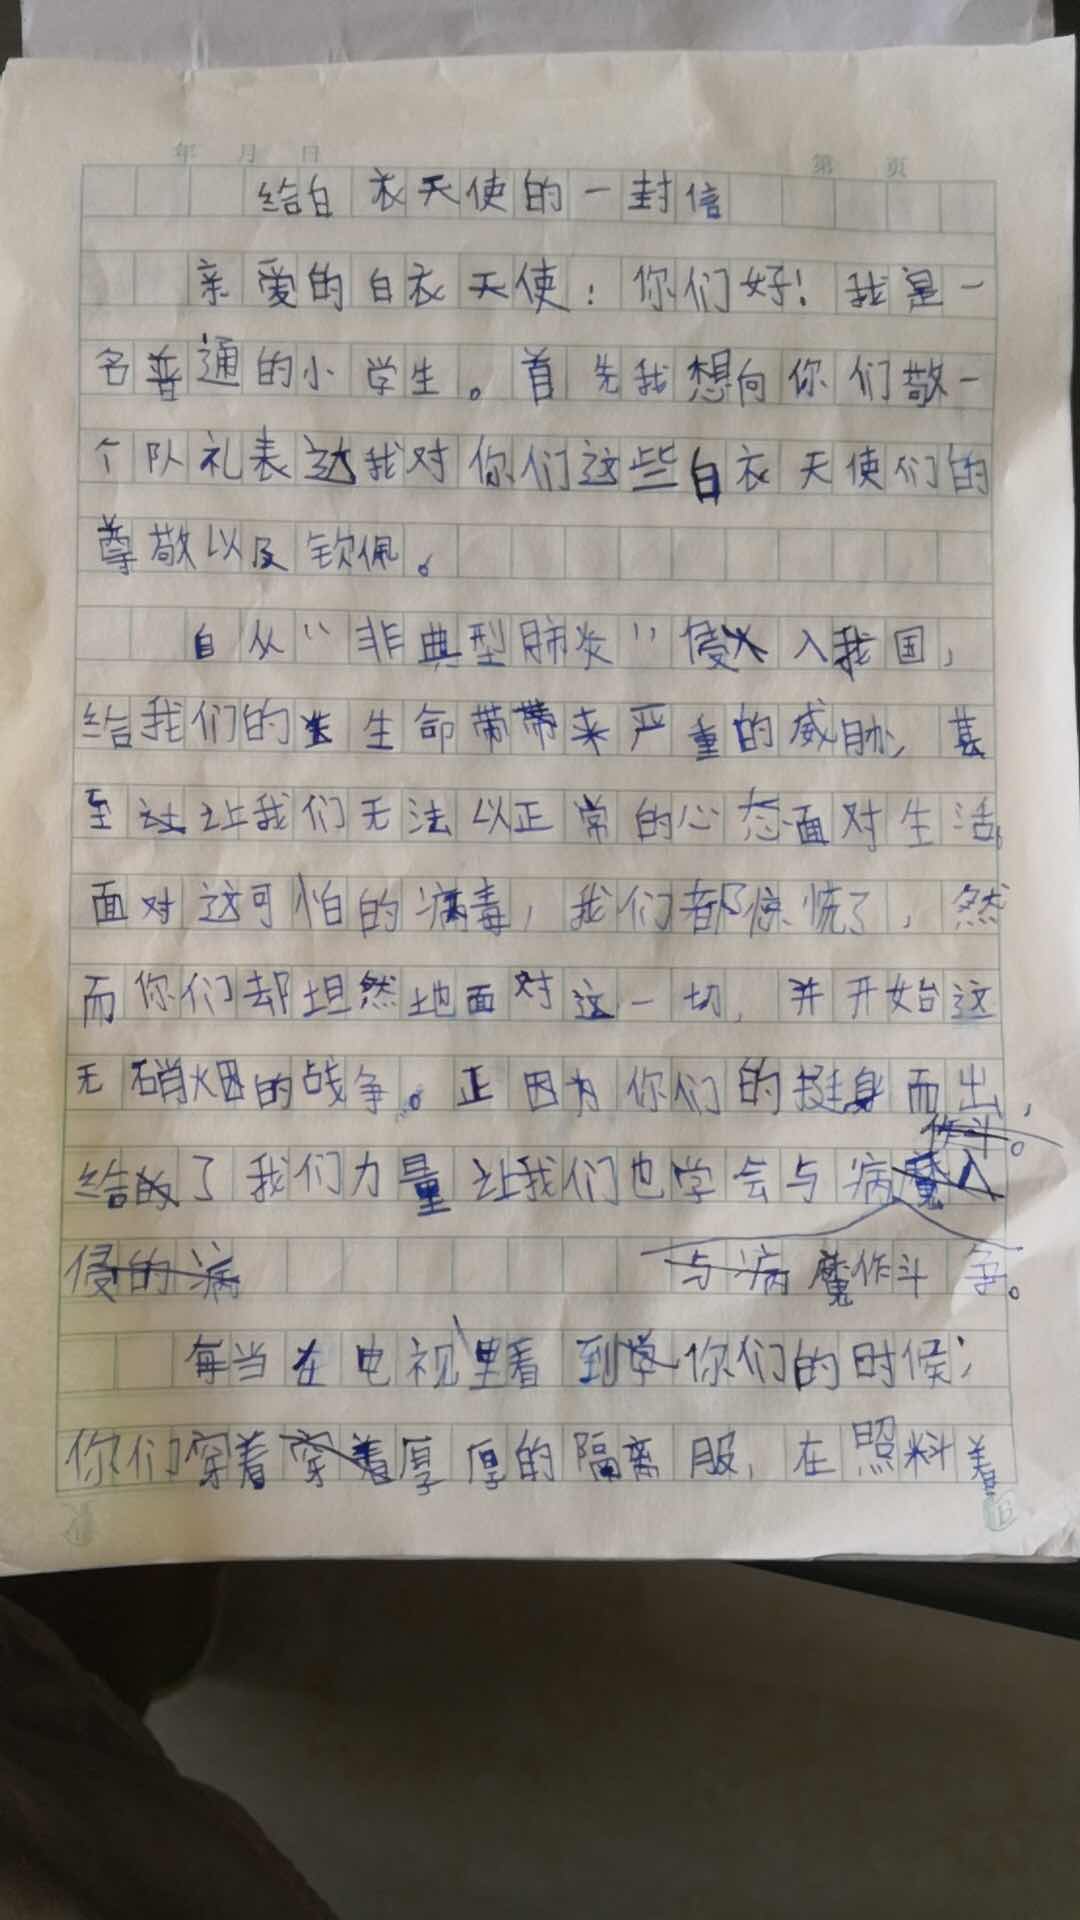 年 月 日 第 页
给白衣天使的一封信
亲爱的白衣天使：你们好！我是一
名普通的小学生。首先我想向你们敬一
个队礼表达我对你们这些白衣天使们的
尊敬以及钦佩。
自从“非典型肺炎”侵入我国，
给我们的生命带带来严重的威胁，甚
至让我们无法以正常的心态面对生活。
面对这可怕的病毒，我们都惊慌了，然
而你们却坦然地面对这一切，并开始这
无硝烟的战争。正因为你们的挺身而出，
作斗。
给了我们力量让我们也学会与病魔入
侵的病 与病魔作斗争。
每当在电视里看到你们的时候，
你们穿着穿着厚厚的隔离服，在照料着